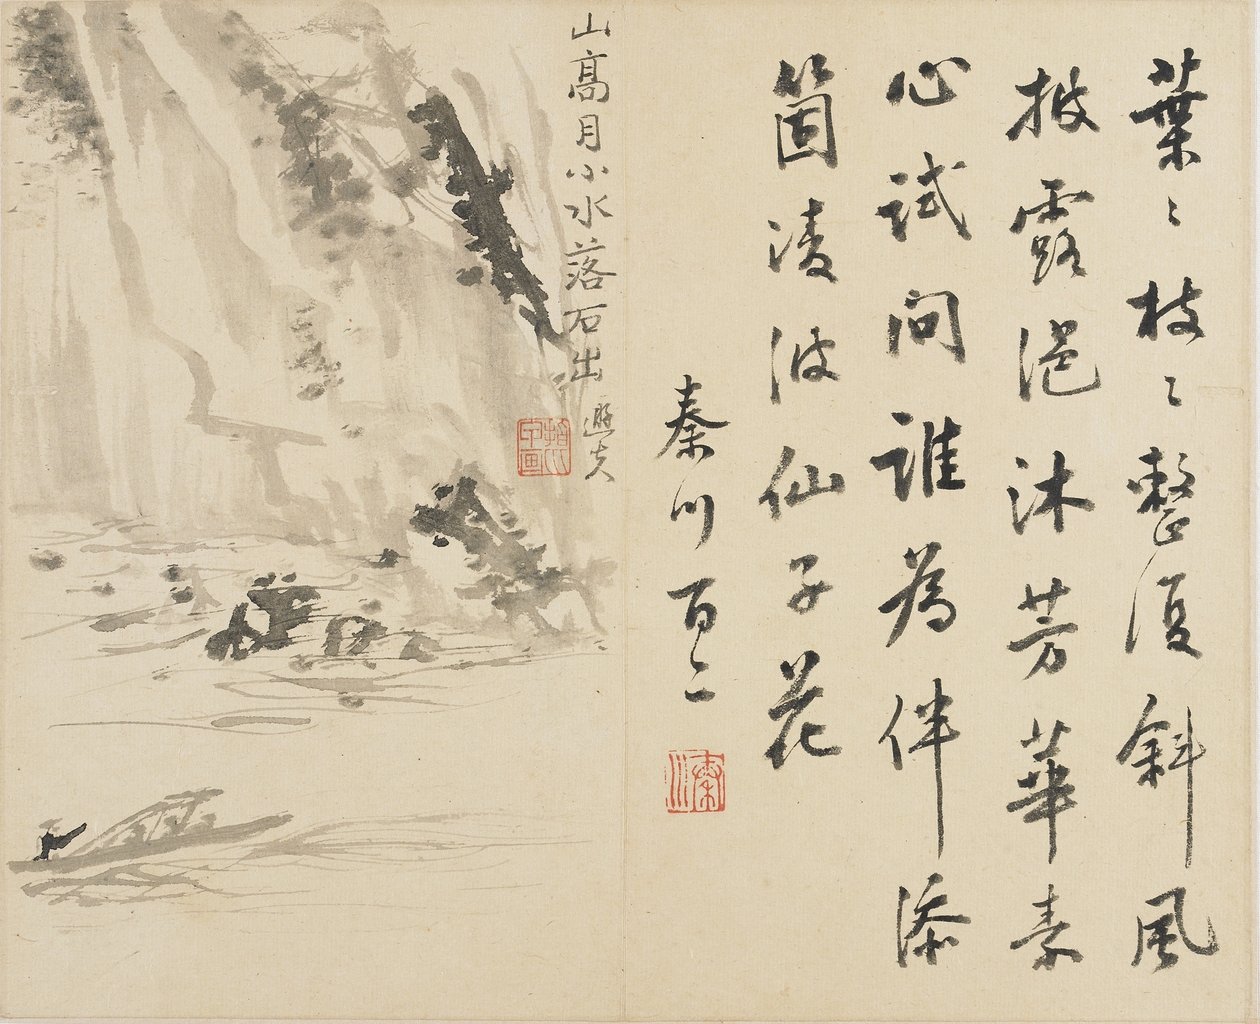 葉〻枝〻整復斜風
披露浥沐芳華素
心試問誰為伴添
箇淩波仙子花
秦川百二
秦川
山髙月小水落石出